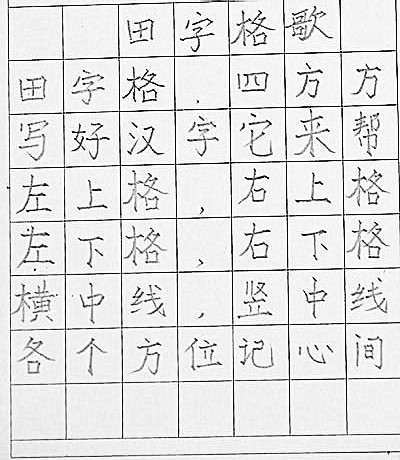 田字格歌
田字格，四方方
写好汉字它来帮
左上格，右上格
左下格、右下格
横中线，竖中线
各个方位记心间